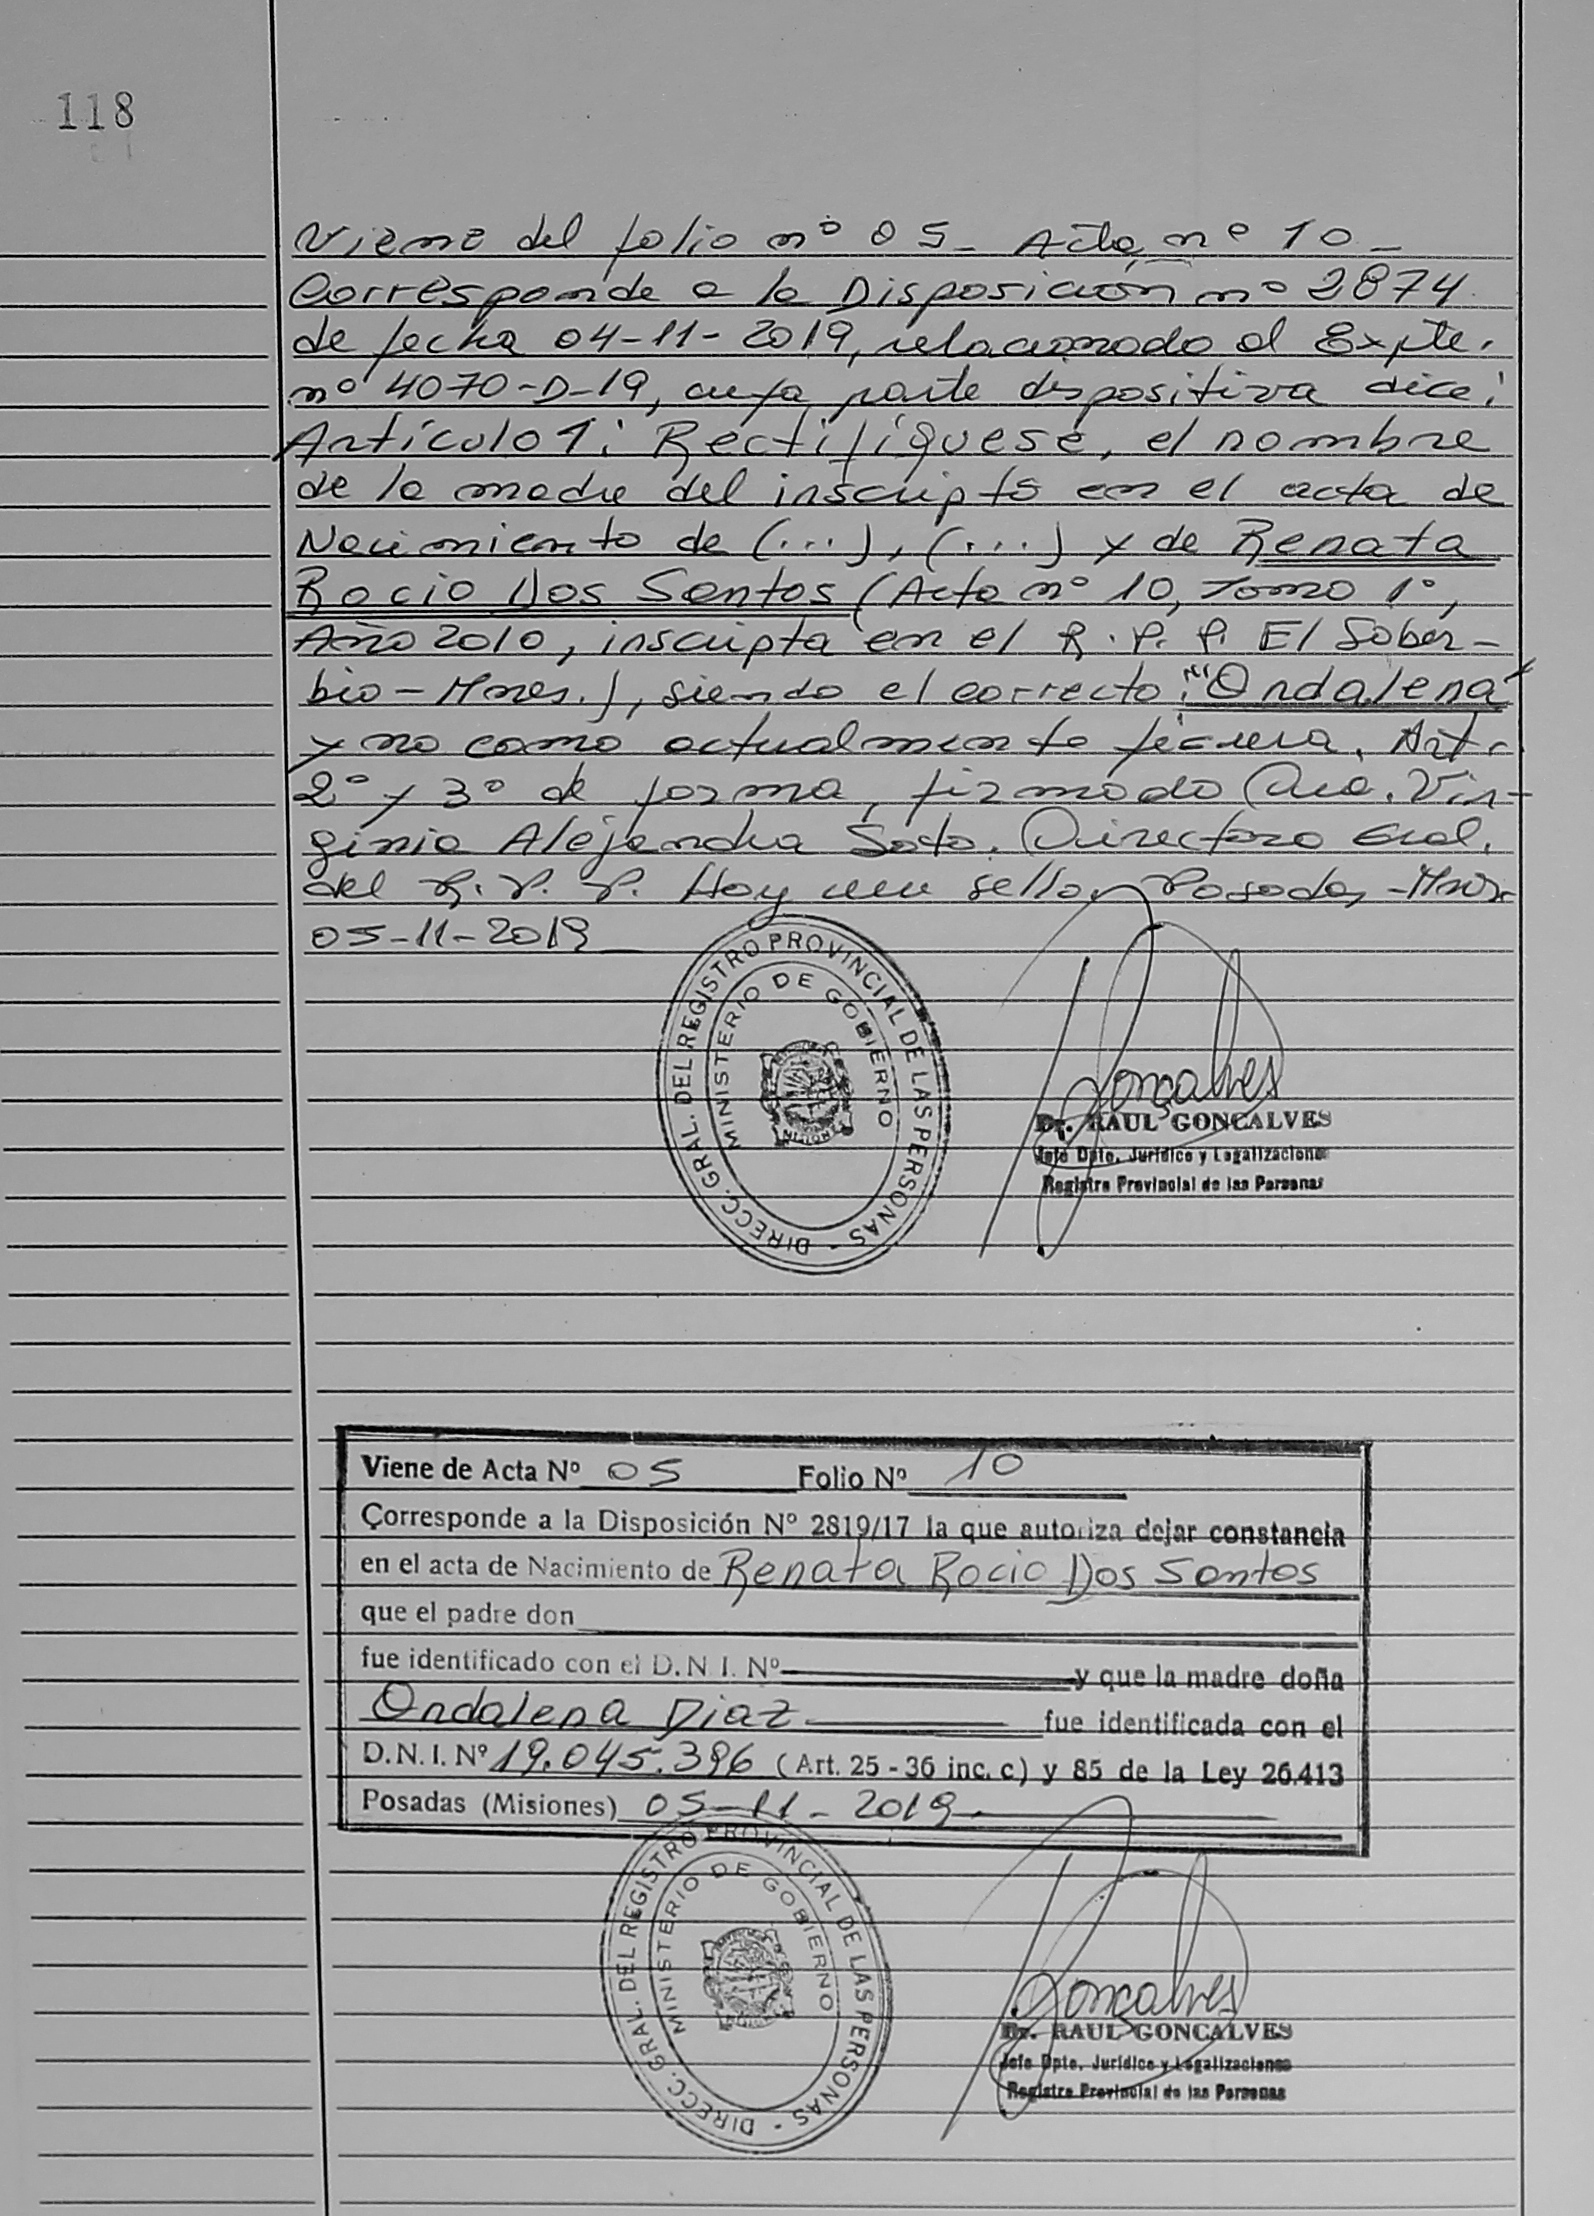 118
Viene del folio nº 05 - Acta nº 10 -
Corresponde a la Disposición nº 2874
de fecha 04-11-2019, relacionado al Expte.
nº 4070-D-19, cuya parte dispositiva dice:
Artículo 1: Rectifíquese, el nombre
de la madre del inscripto en el acta de
Nacimiento de (...), (...) y de Renata
Rocio Dos Santos (Acta nº 10, Tomo 1º,
Año 2010, inscripta en el R.P.P. El Sober-
bio - Mnes.), siendo el correcto: "Ondalena"
y no como actualmente figura. Art.
2º y 3º de forma, firmado Dra. Vir-
ginia Alejandra Soto. Directora Gral.
del R.P.P. Hay un sello. Posadas, -Mnes.
05-11-2019
DIRECC. GRAL. DEL REGISTRO PROVINCIAL DE LAS PERSONAS -
MINISTERIO DE GOBIERNO
MISIONES
Gonçalves
Dr. RAUL GONCALVES
Jefe Dpto. Jurídico y Legalizaciones
Registro Provincial de las Personas
Viene de Acta Nº 05 Folio Nº 10
Corresponde a la Disposición Nº 2819/17 la que autoriza dejar constancia
en el acta de Nacimiento de Renata Rocio Dos Santos
que el padre don
fue identificado con el D.N.I. Nº y que la madre doña
Ondalena Diaz fue identificada con el
D.N.I. Nº 19.045.396 (Art. 25 - 36 inc. c) y 85 de la Ley 26.413
Posadas (Misiones) 05-11-2019
DIRECC. GRAL. DEL REGISTRO PROVINCIAL DE LAS PERSONAS -
MINISTERIO DE GOBIERNO
Gonçalves
Dr. RAUL GONCALVES
Jefe Dpto. Jurídico y Legalizaciones
Registro Provincial de las Personas